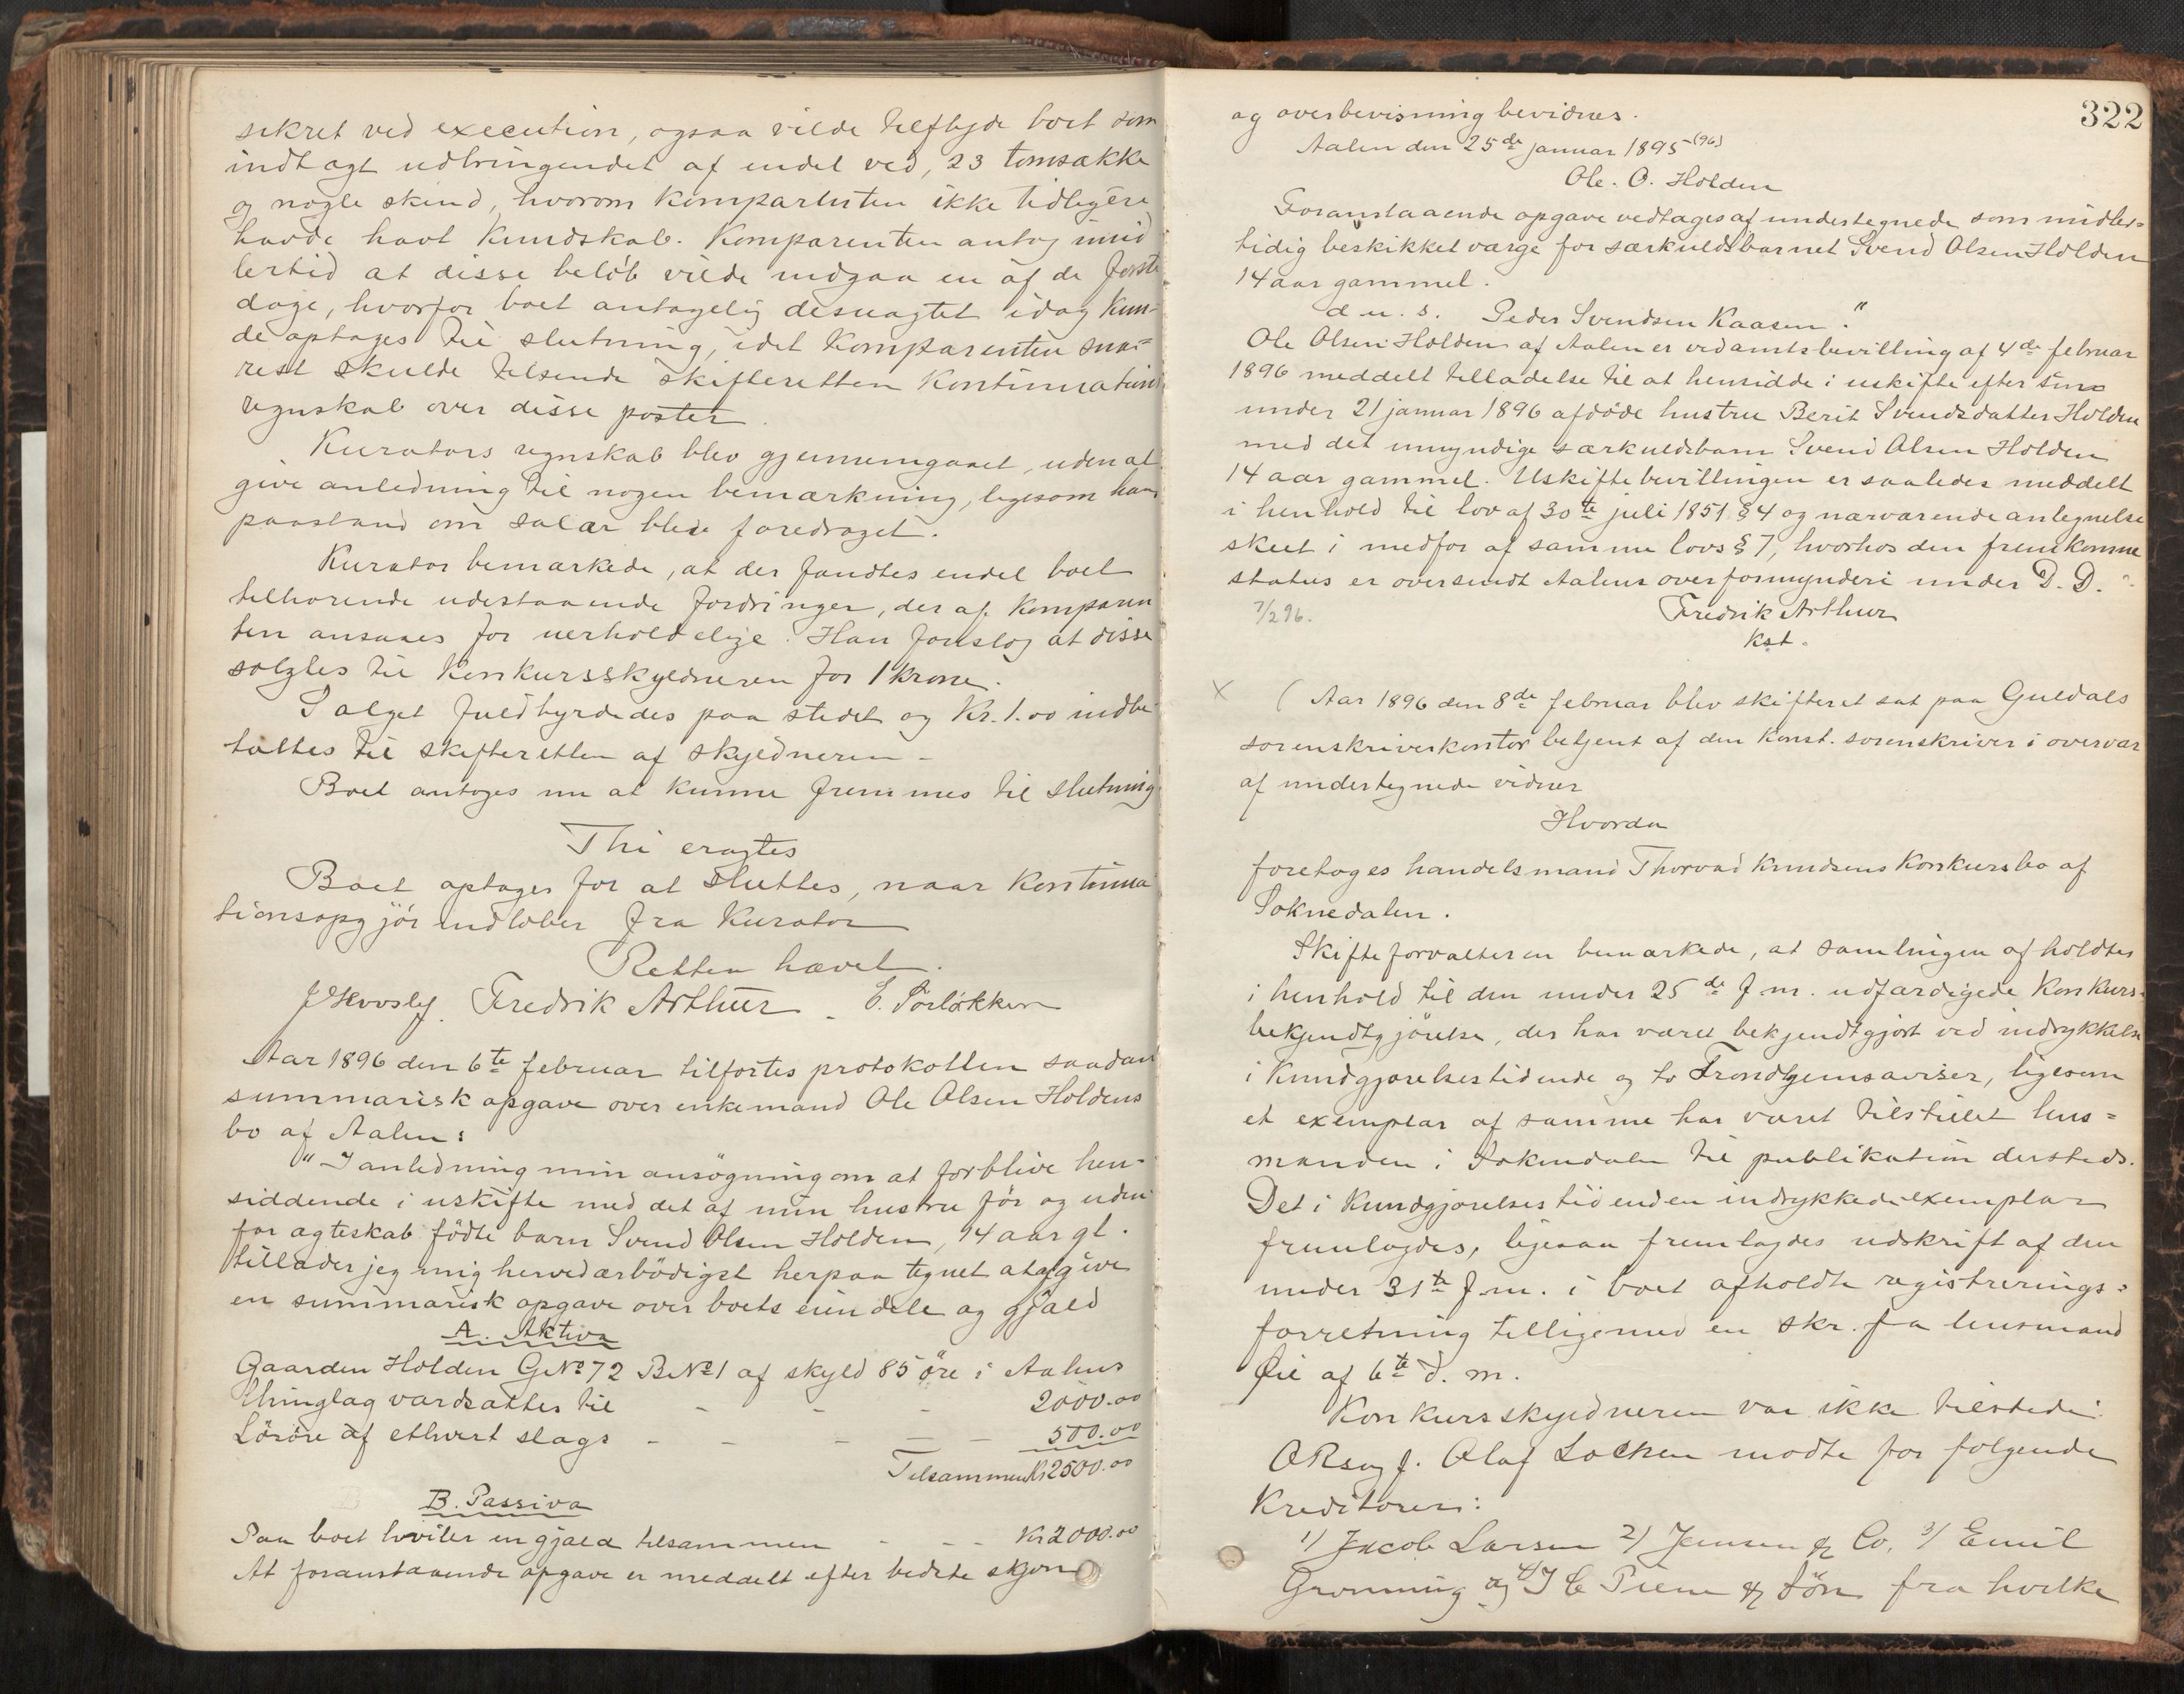 sikret ved execution, ogsaa vilde tilflyde boet som
indtægt udbringendet af endel ved, 23 tomsække
og nogle skind, hvorom komparenten ikke tidligere
havde havt kundskab. Komparenten antog imid
lertid at disse beløb vilde indgaa en af de første
dage, hvorfor boet antagelig desuagtet idag kun-
de optages til slutning, idet komparenten sna-
rest skulde tilsende skifteretten kontinuations
regnskab over disse poster.
Kurators regnskab blev gjennemgaaet, uden at
give anledning til nogen bemærkning, ligesom hans
paastand om salær blev foredraget.
Kurator bemærkede, at der fandtes endel boet
tilhørende udestaaende fordringer, der af komparen
ten ansaaes for uerholdelige. Han foreslog at disse
solgtes til konkursskyldneren for 1 krone.
Salget fuldbyrdedes paa stedet og Kr. 1.00 indbe
taltes til skifteretten af skyldneren -
Boet antoges nu at kunne fremmes til slutning
Thi eragtes
Boet optages for at sluttes, naar kontinua
tionsopgjör indløber fra kurator
Retten hævet.
J Hovslef. Fredrik Arthur - E. Sørløkken
Aar 1896 den 6te februar tilførtes protokollen saadan
summarisk opgave over enkemand Ole Olsen Holdens
bo af Aalen:
"I anledning min ansögning om at forblive hen-
siddende i uskifte med det af min hustru før og uden
for ægteskab födte barn Svend Olsen Holden, 14 aar gl.
tillader jeg mig herved ærbödigst herpaa tegnet at afgive
en summarisk opgave over boets eiendele og gjæld
A. Aktiva
Gaarden Holden G.No 72 B.No 1 af skyld 85 öre i Aalens
thinglag værdsættes til - - - 2000.00
Lösöre af ethvert slags - - - - - 500.00
Tilsammen Kr 2500.00
B. Passiva
Paa boet hviler en gjæld tilsammen - - - Kr 2000.00
At foranstaaende opgave er meddelt efter bedste skjøn
322
og overbevisning bevidnes.
Aalen den 25de januar 1895 (96)
Ole. O. Holden
Foranstaaende opgave vedtages af undertegnede som midler=
tidig beskikket værge for særkuldsbarnet Svend Olsen Holden
14 aar gammel.
d. u. s. Peder Svendsen Kaasen."
Ole Olsen Holden af Aalen er ved amtsbevilling af 4de februar
1896 meddelt tilladelse til at hensidde i uskifte efter sin
under 21 januar 1896 afdöde hustru Berit Svendsdatter Holden
med det umyndige særkuldsbarn Svend Olsen Holden
14 aar gammel. Uskiftebevillingen er saaledes meddelt
i henhold til lov af 30te juli 1851 § 4 og nærværende antegnelse
skeet i medfør af samme lovs § 7, hvorhos den fremkomne
status er oversendt Aalens overformynderi under D. D.
7/2 96. Fredrik Arthur
kst.
x ( Aar 1896 den 8de februar blev skifteret sat paa Guldals
sorenskriverkontor betjent af den konst. sorenskriver i overvær
af undertegnede vidner
Hvorda
foretoges handelsmand Thorvad Knudsens konkursbo af
Soknedalen.
Skifteforvalteren bemærkede, at samlingen afholdtes
i henhold til den under 25de f. m. udfærdigede konkurs-
bekjendtgjörelse, der har været bekjendtgjort ved indrykkelse
i Kundgjørelsestidende og to Trondhjemsaviser, ligesom
et exemplar af samme har været tilstillet lens=
manden i Soknedalen til publikation dersteds.
Det i Kundgjørelsestidenden indrykkede exemplar
fremlagdes, ligesaa fremlagdes udskrift af den
under 31te f. m. i boet afholdte registrerings=
forretning tilligemed en skr. fra lensmand
Øie af 6te d. m.
Konkursskyldneren var ikke tilstede.
ORsagf. Olaf Løchen mødte for følgende
kreditorer:
1/ Jacob Larsen 2/ Jensen & Co. 3/ Emil
Grønning og 4/ I C Piene & Sön fra hvilke